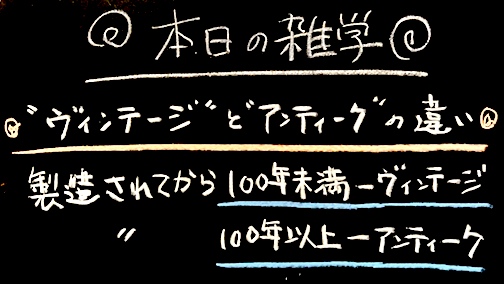 本日の雑学
"ヴィンテージ"と"アンティーク"の違い
製造されてから100年未満ーヴィンテージ
〃 100年以上ーアンティーク